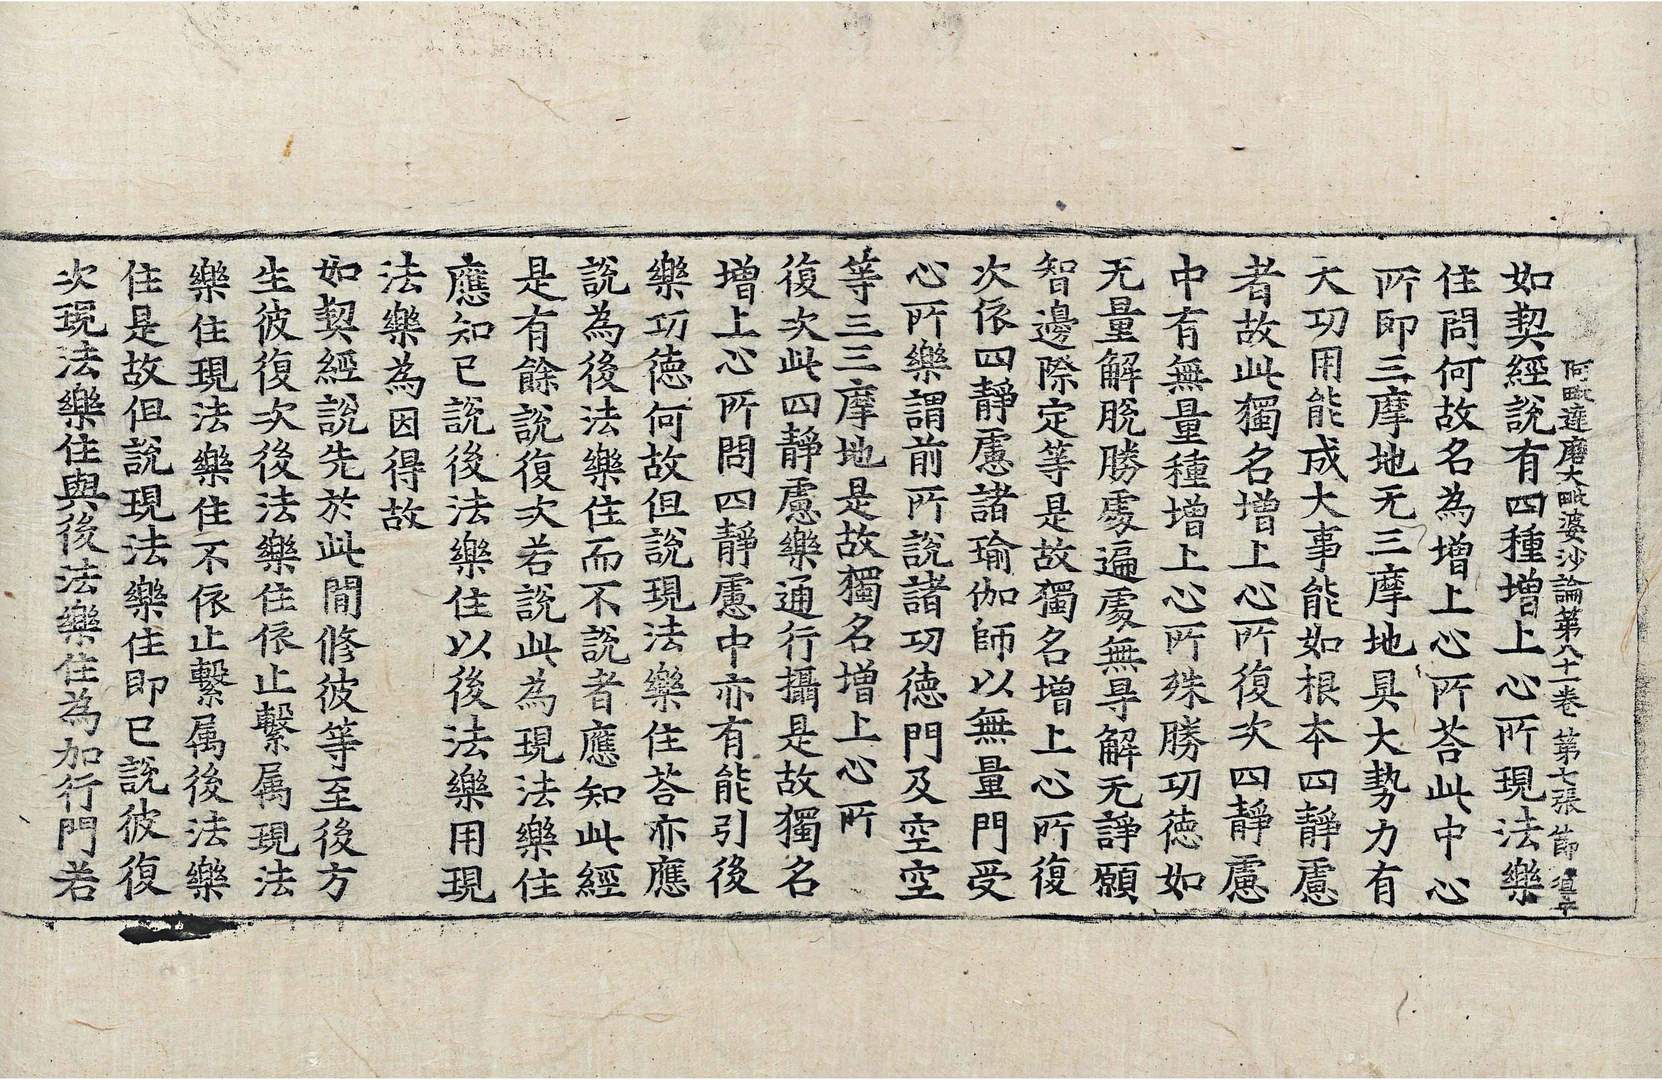 阿毗達磨大毗婆沙論第八十一卷 第七張 節
如契經說有四種增上心所現法樂
住問何故名為增上心所荅此中心
所即三摩地无三摩地具大勢力有
大功用能成大事能如根本四靜慮
者故此獨名增上心所復次四靜慮
中有無量種增上心所殊勝功徳如
无量解脫勝處遍處無㝵解无諍願
智邊際定等是故獨名增上心所復
次依四靜慮諸瑜伽師以無量門受
心所樂謂前所說諸功徳門及空空
等三三摩地是故獨名增上心所
復次此四靜慮樂通行攝是故獨名
增上心所問四靜慮中亦有能引後
樂功徳何故但說現法樂住荅亦應
說為後法樂住而不說者應知此經
是有餘說復次若說此為現法樂住
應知已說後法樂住以後法樂用現
法樂為因得故
如契經說先於此間修彼等至後方
生彼復次後法樂住依止繫属現法
樂住現法樂住不依止繫属後法樂
住是故但說現法樂住即已說彼復
次現法樂住與後法樂住為加行門若